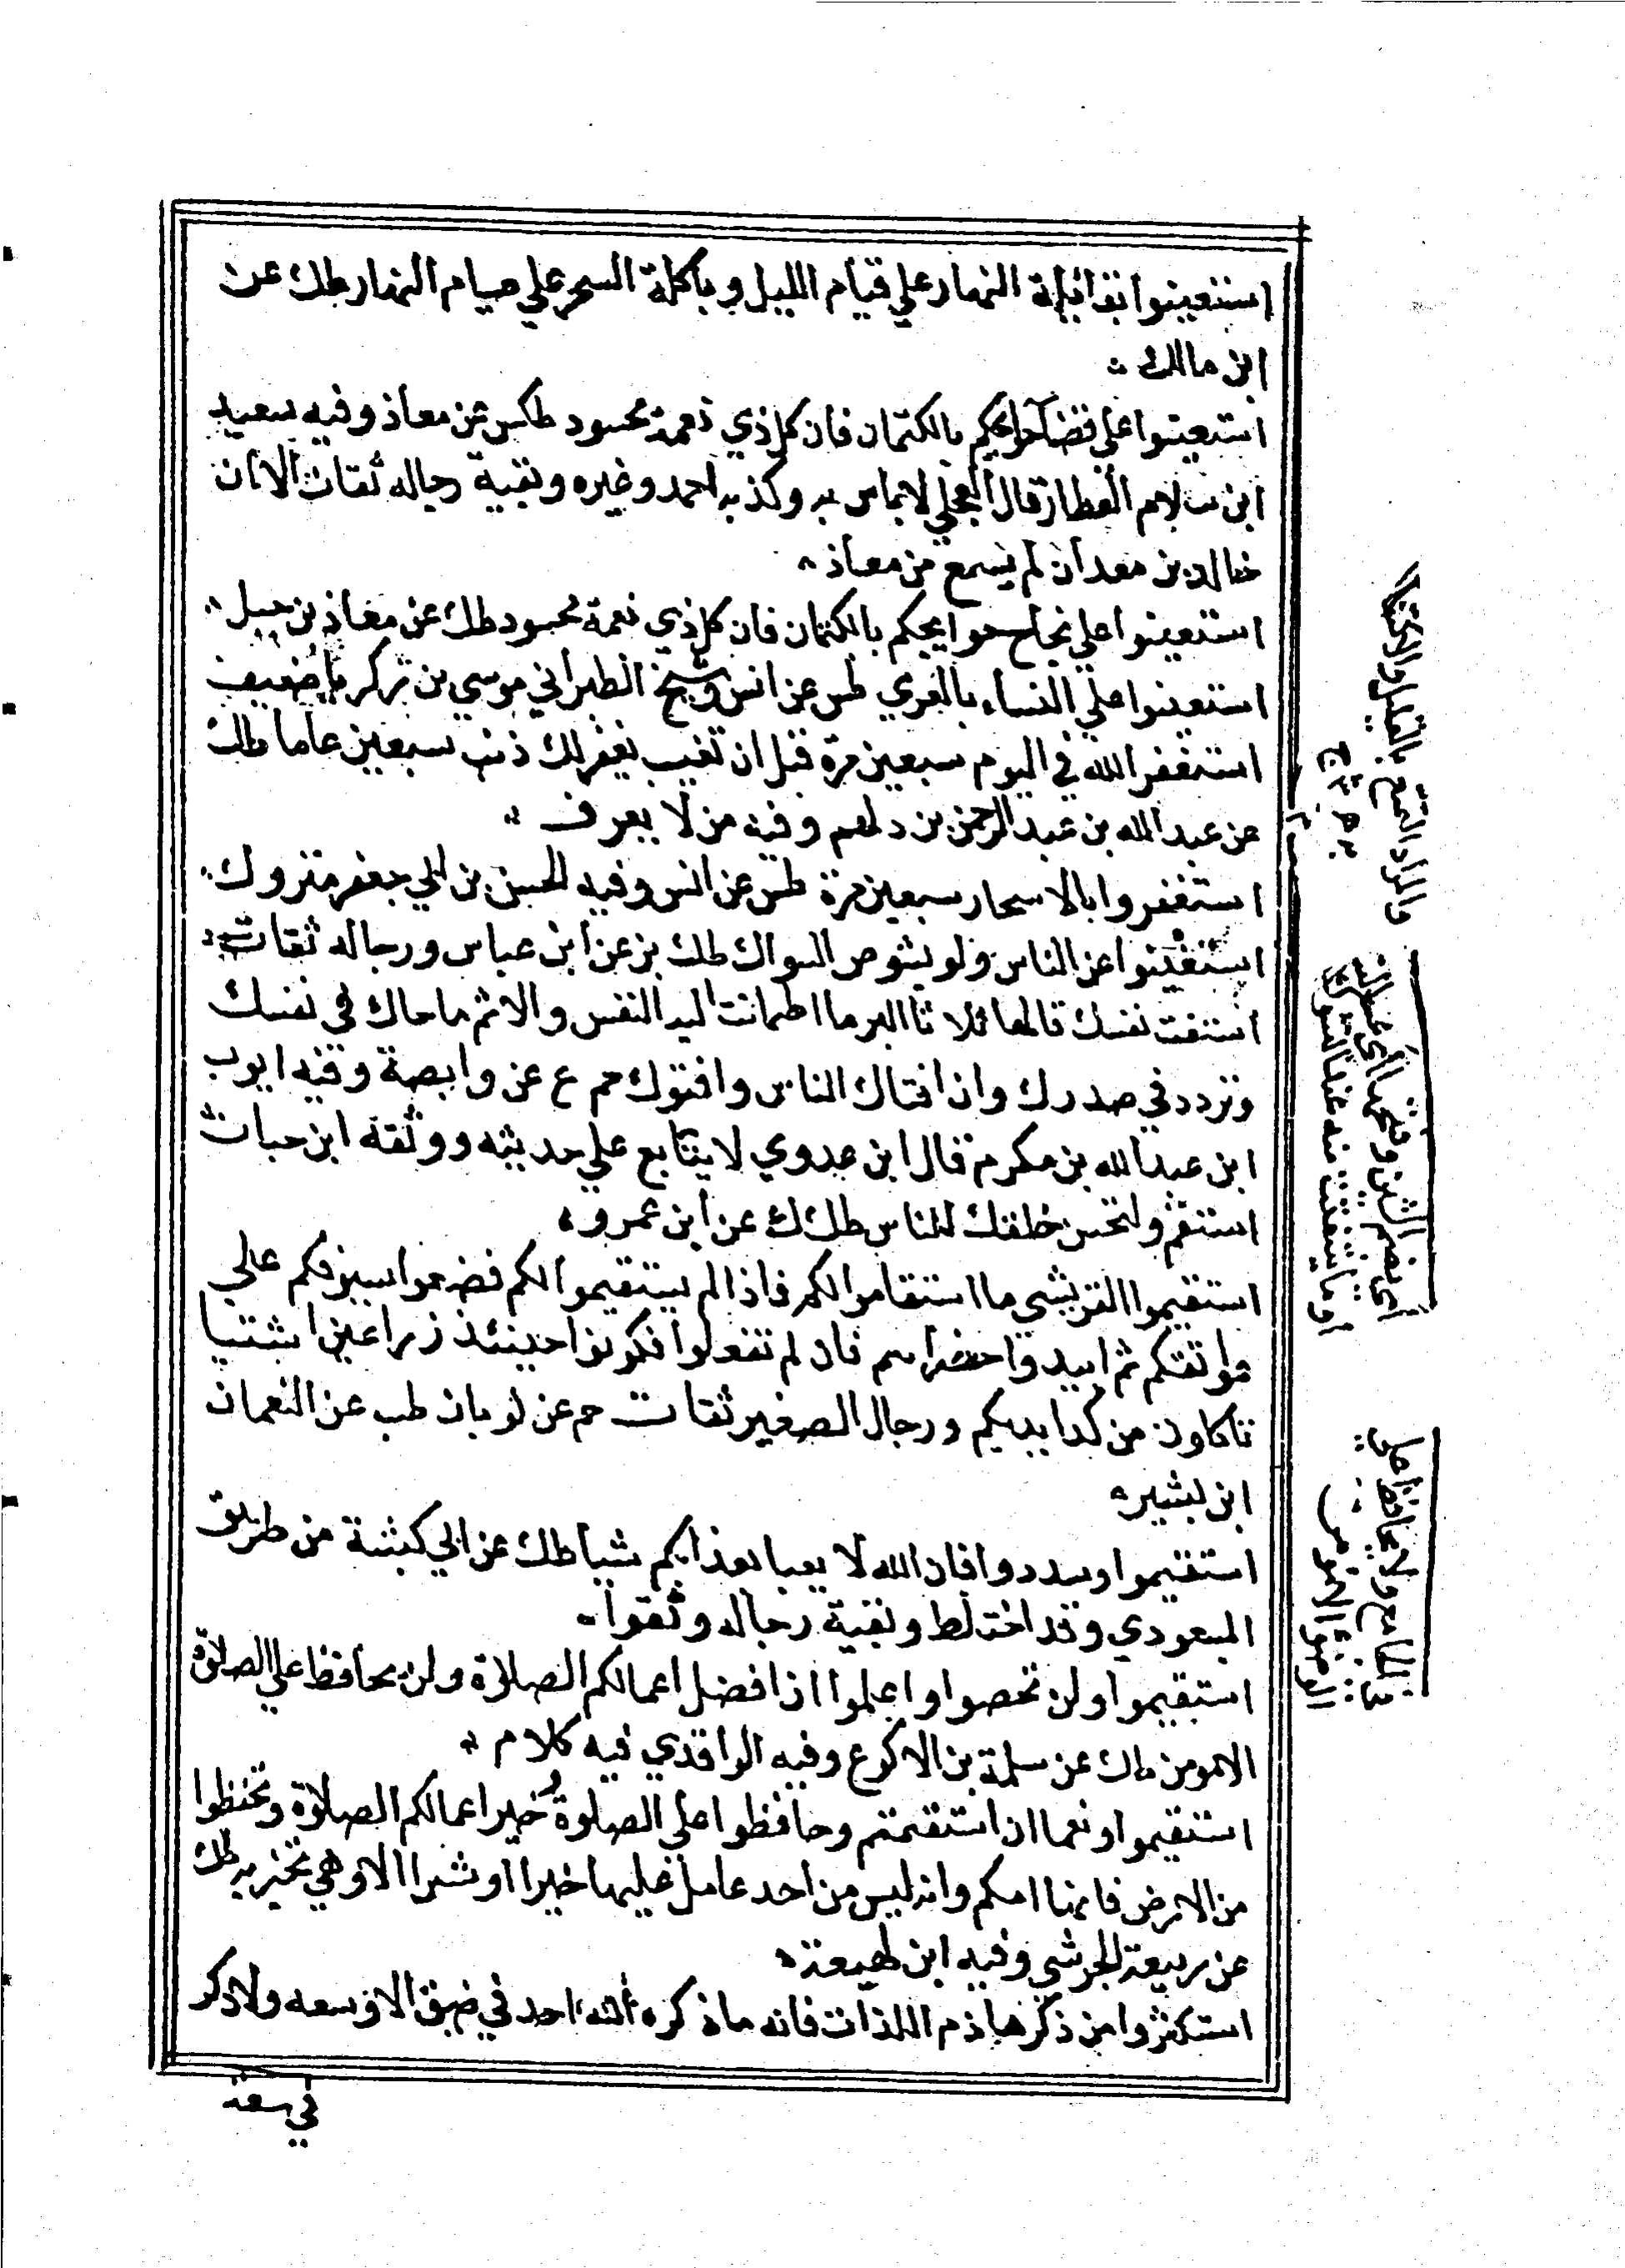 استعينوا بقائلة النهار علي قيام الليل وباكلة السحر علي صيام النهار طك عن
ابن مالك
استعينوا علي قضآ حوايجكم بالكتمان فان كل ذي نعمة محسود طكس عن معاذ وفيه سعيد
ابن سلام العطار قال العجلي لاباس به وكذبه احمد وغيره وبقية رجاله ثقات الا ان
خالد بن معدان لم يسمع من معاذ
استعينوا علي نجاح حوايجكم بالكتمان فان كل ذي نعمة محسود طك عن معاذ بن جبل
استعينوا علي النساء بالعري طس عن انس وشيخ الطبراني موسي بن زكريا ضعيف
استغفر الله في اليوم سبعين مرة قبل ان تغيب يغفر لك ذنب سبعين عاما طك
عن عبد الله بن عبد الرحمن بن دلهم وفيه من لا يعرف
استغفروا بالاسحار سبعين مرة طس عن انس وفيه الحسن بن ابي جعفر متروك
استغنوا عن الناس ولو بشوص السواك طك بز عن ابن عباس ورجاله ثقات
استفت نفسك قالها ثلاثا البر ما اطمانت اليه النفس والاثم ما حاك في نفسك
وتردد في صدرك وان افتاك الناس وافتوك حم ع عن وابصة وفيه ايوب
ابن عبد الله بن مكرم قال ابن عدوي لا يتابع علي حديثه ووثقه ابن حبان
استقم ولتحسن خلقك للناس طك ك عن ابن عمرو
استقيموا لقريش ما استقاموا لكم فاذا لم يستقيموا لكم فضعوا سيوفكم علي
عواتقكم ثم ابيدوا خضراءهم فان لم تفعلوا فكونوا حينئذ زراعين اشقيا
تاكلون من كد ايديكم ورجال الصغير ثقات حم عن ثوبان طب عن النعمان
ابن بشير
استقيموا وسددوا فان الله لا يعبا بعذابكم شيا طك عن ابي كبشة من طريق
المسعودي وقد اختلط وبقية رجاله وثقوا
استقيموا ولن تحصوا واعلموا ان افضل اعمالكم الصلاة ولن يحافظ علي الصلاة
الا مومن طك عن سلمة بن الاكوع وفيه الواقدي فيه كلام
استقيموا ونعما ان استقمتم وحافظوا علي الصلوة خير اعمالكم الصلاة وتحفظوا
من الارض فانها امكم وانه ليس من احد عامل عليها خيرا او شرا الا وهي تخبر به طك
عن ربيعة الجرشي وفيه ابن لهيعة
استكثروا من ذكر هاذم اللذات فانه ما ذكره احد في ضيق الا وسعه ولا ذكر
في سعة